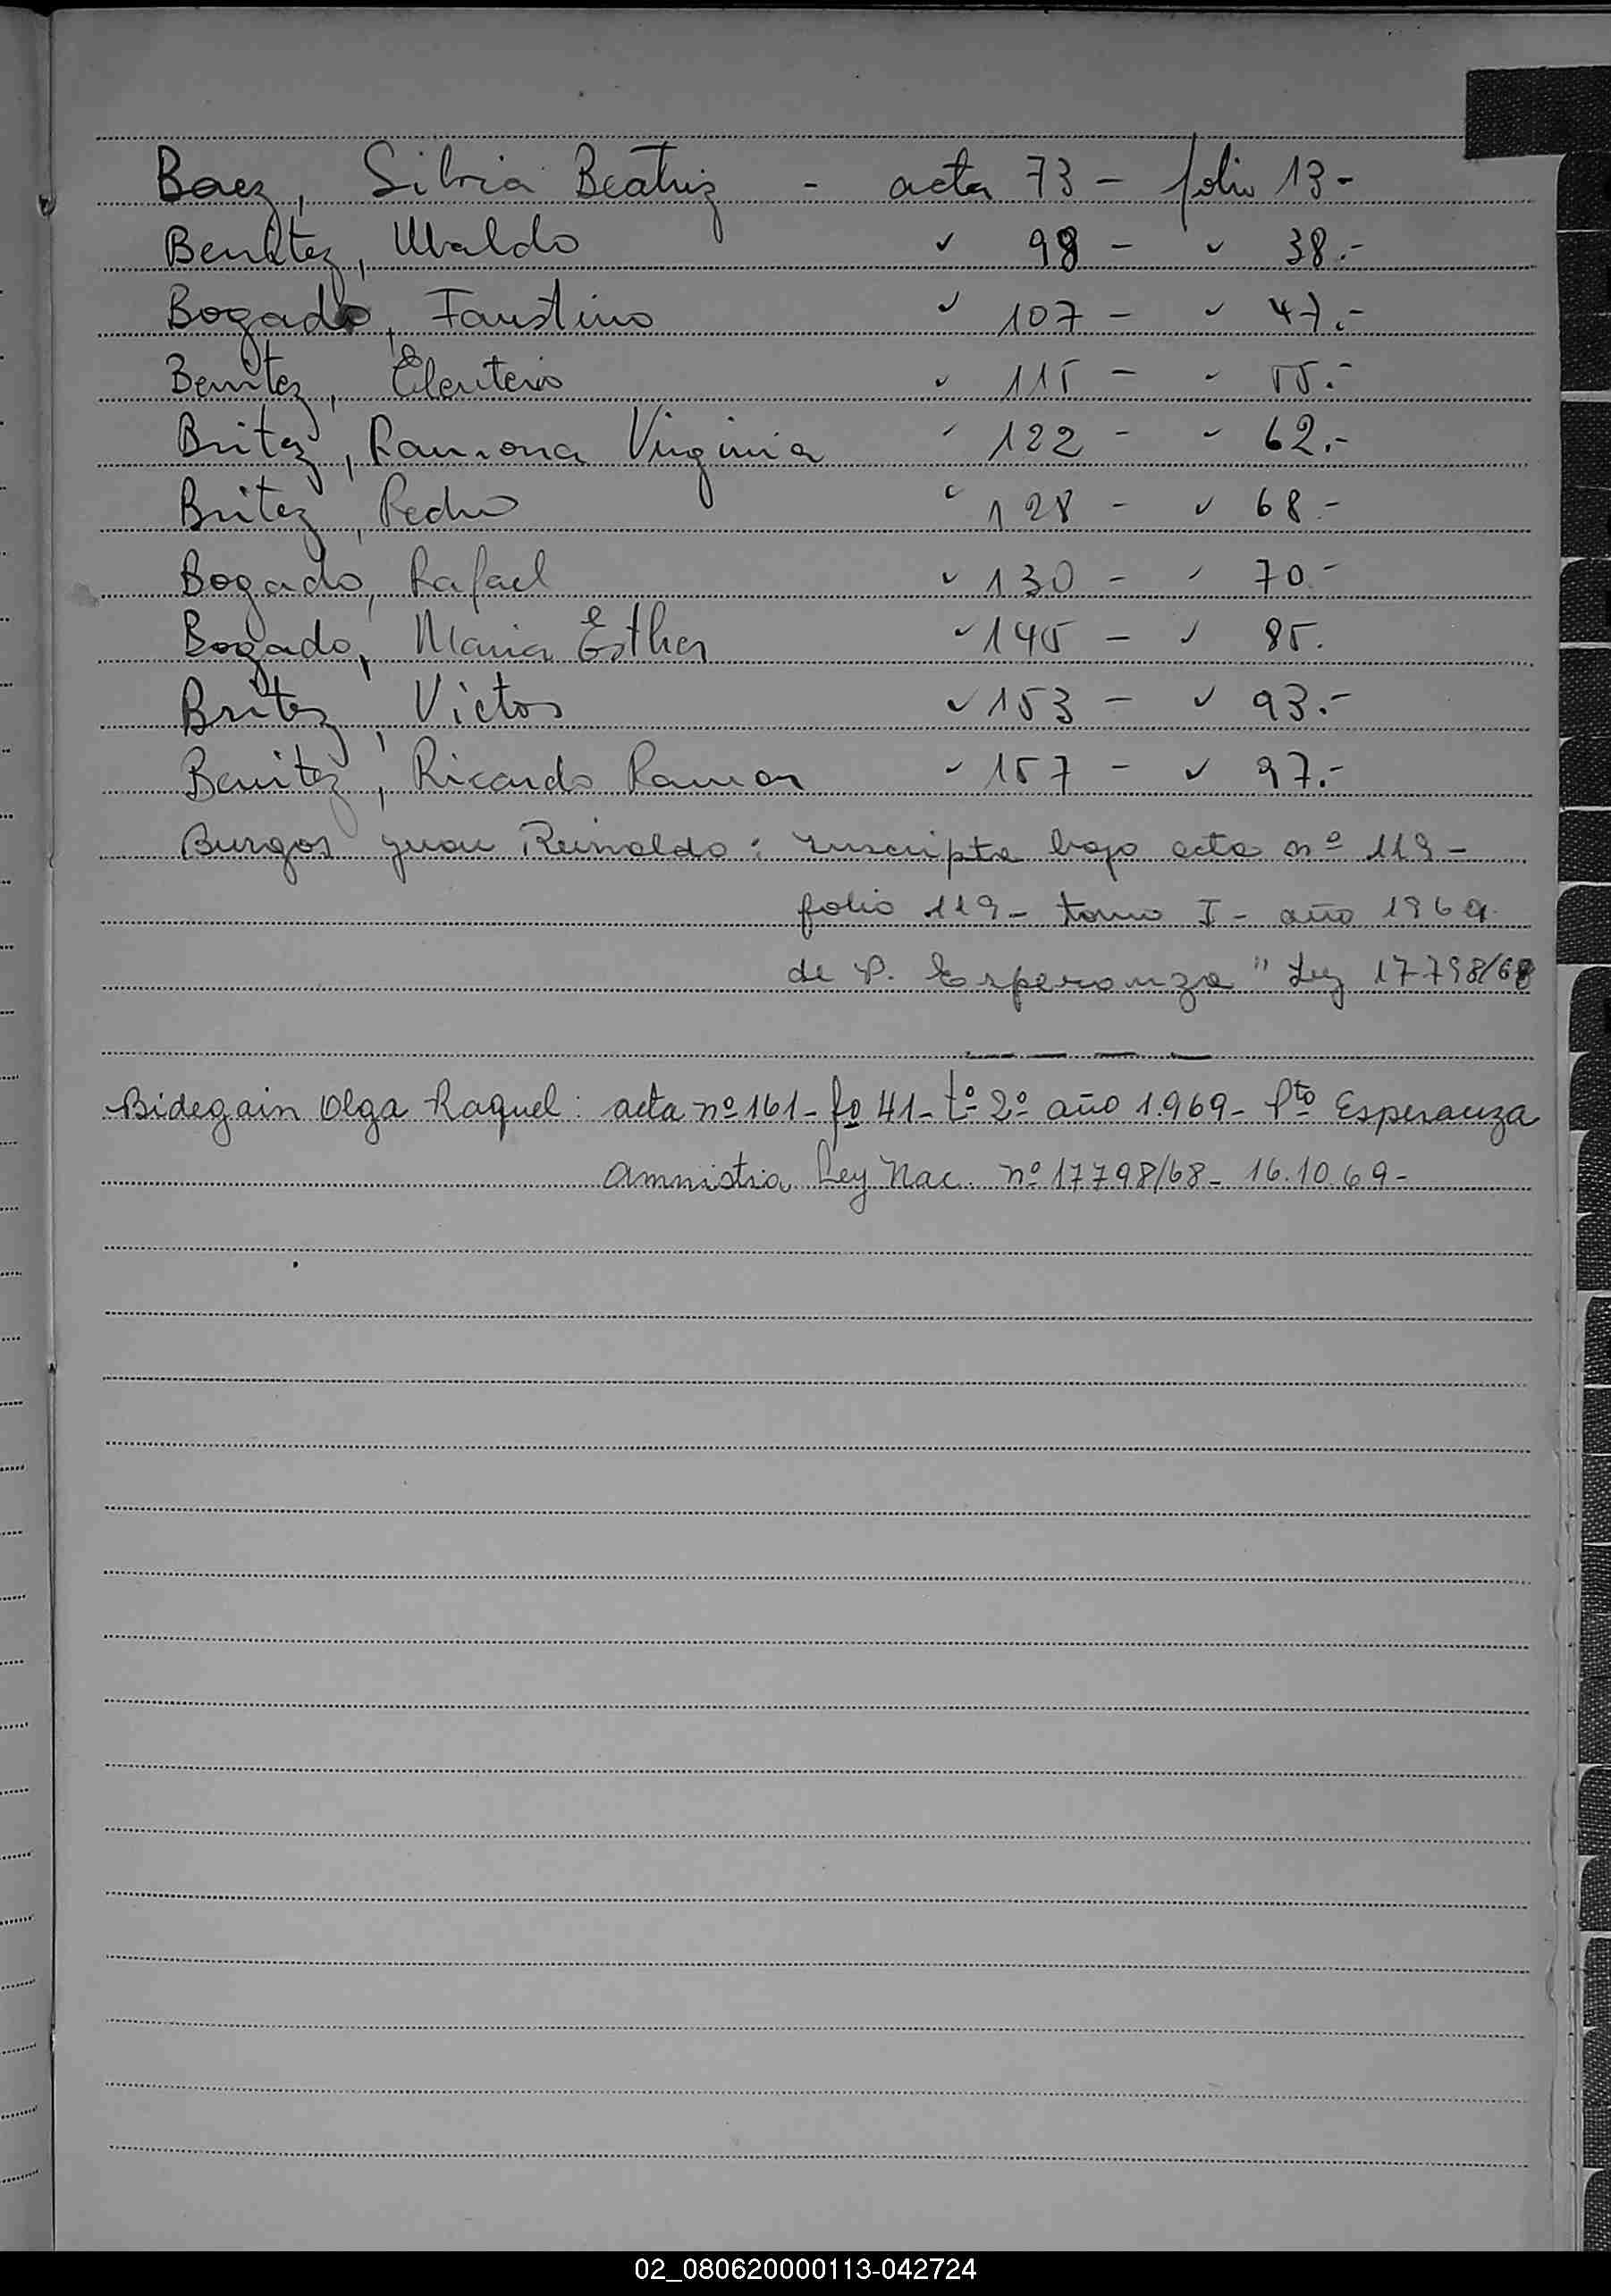 Baez, Silvia Beatriz - acta 73 - folio 13-
Benitez, Ubaldo " 98 - " 38.-
Bogado, Faustino " 107 - " 47.-
Benitez, Eleuterio " 115 - " 55.-
Britez, Ramona Virginia " 122 - " 62.-
Britez, Pedro " 128 - " 68.-
Bogado, Rafael " 130 - " 70.-
Bogado, Maria Esther " 145 - " 85.
Britez, Victor " 153 - " 93.-
Benitez, Ricardo Ramon " 157 - " 97.-
Burgos Juan Reinaldo: Inscripta bajo acta nº 119-
folio 119- tomo I- año 1969.
de P. Esperanza" Ley 17798/68
Bidegain Olga Raquel: acta nº 161- fº 41- tº 2º año 1.969- Pto Esperanza
Amnistia Ley Nac. nº 17798/68- 16.10.69-
02_080620000113-042724